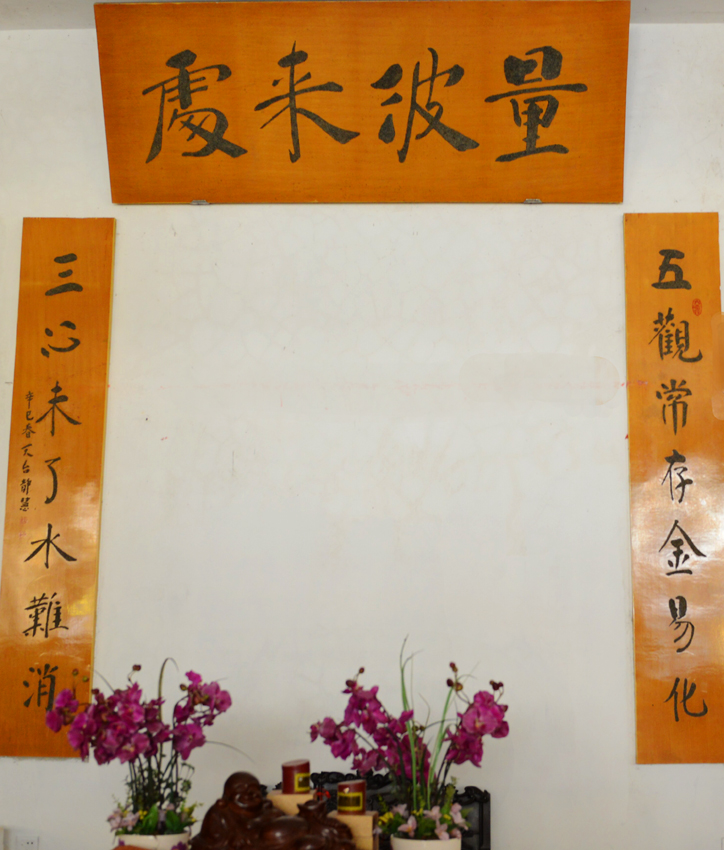 量彼来處
五觀常存金易化
三心未了水難消
辛巳春天台